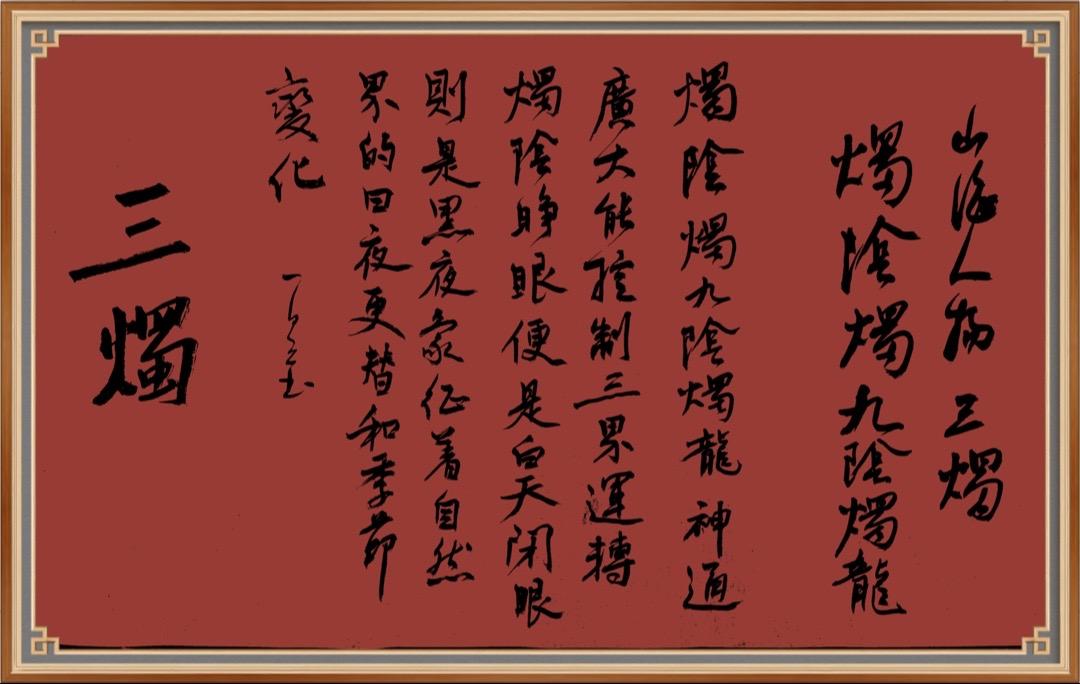 山海人物三燭
燭陰燭九陰燭龍
燭陰燭九陰燭龍神通
廣大能控制三界運轉
燭陰睁眼便是白天闭眼
則是黑夜象征着自然
界的日夜更替和季節
變化
三燭